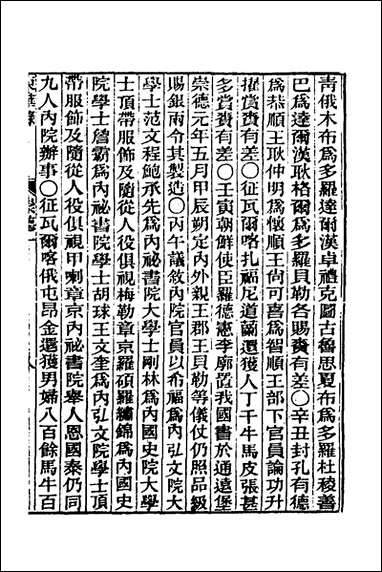 青俄木布爲多羅達爾漢卓禮克圖古魯思夏布爲多羅杜稜善
巴爲達爾漢耿格爾爲多羅貝勒各賜賚有差〇辛丑封孔有德
爲恭順王耿仲明爲懷順王尚可喜爲智順王部下官員論功升
擢賞賚有差〇征瓦爾喀扎福尼道蘭還獲人丁千牛馬皮張甚
多賞賚有差〇壬寅朝鮮使臣羅德憲李廓置我國書於通遠堡
崇德元年五月甲辰朔定內外親王郡王貝勒等儀仗仍照品級
賜銀兩令其製造〇丙午議敘內院官員以希福爲內弘文院大
學士范文程鮑承先爲內祕書院大學士剛林爲內國史院大學
士頂帶服飾及隨從人役俱視梅勒章京羅碩羅繡錦爲內國史
院學士詹霸爲內祕書院學士胡球王文奎爲內弘文院學士頂
帶服飾及隨從人役俱視甲喇章京內祕書院舉人恩國泰仍同
九人內院辦事〇征瓦爾喀俄屯昂金還獲男婦八百餘馬牛百